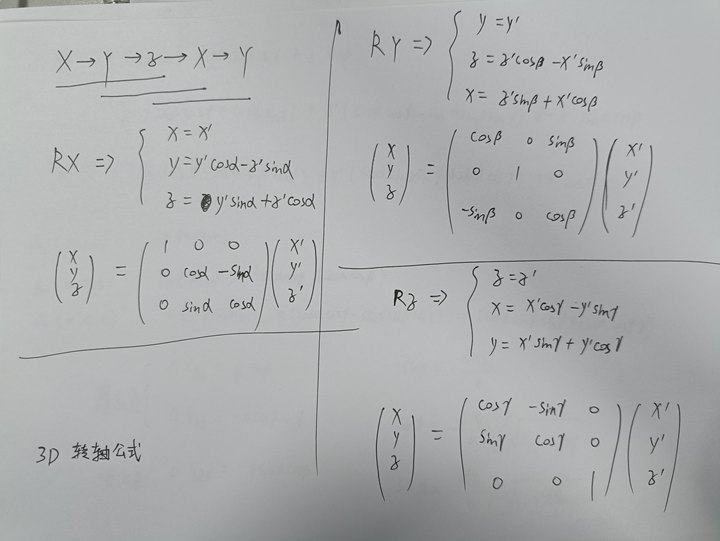 X→Y→z→X→Y
RX => { X = X'
y = y'cosα - z'sinα
z = y'sinα + z'cosα
(X y z) = (1 0 0
0 cosα -sinα
0 sinα cosα) (X' y' z')
3D 转轴公式
RY => { y = y'
z = z'cosβ - X'sinβ
X = z'sinβ + X'cosβ
(X y z) = (cosβ 0 sinβ
0 1 0
-sinβ 0 cosβ) (X' y' z')
Rz => { z = z'
X = X'cosγ - y'sinγ
y = X'sinγ + y'cosγ
(X y z) = (cosγ -sinγ 0
sinγ cosγ 0
0 0 1) (X' y' z')